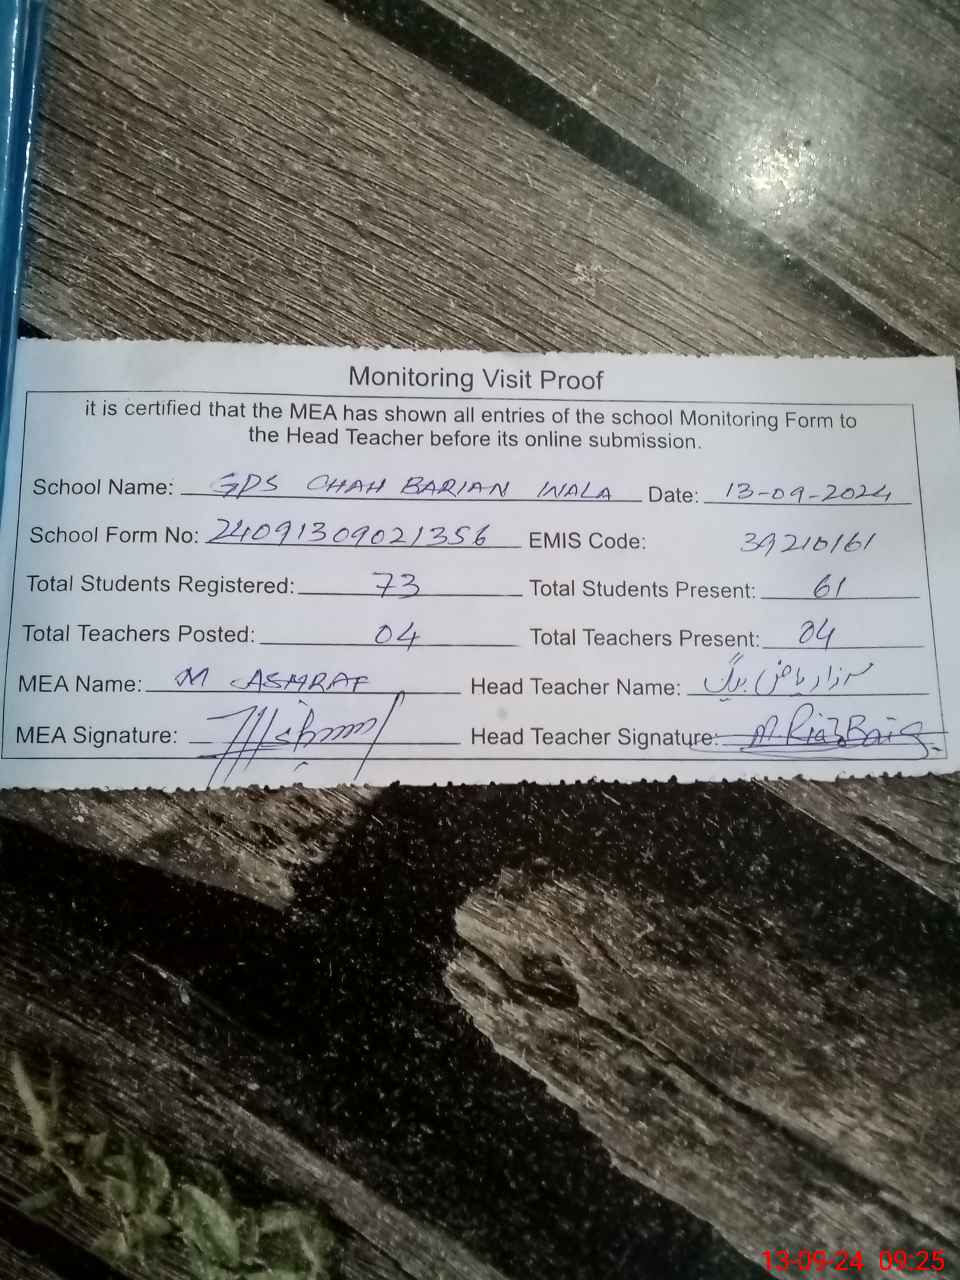 Monitoring Visit Proof
it is certified that the MEA has shown all entries of the school Monitoring Form to
the Head Teacher before its online submission.
School Name: GPS CHAH BARIAN WALA Date: 13-09-2024
School Form No: 24091309021356 EMIS Code: 39210161
Total Students Registered: 73 Total Students Present: 61
Total Teachers Posted: 04 Total Teachers Present: 04
MEA Name: M ASHRAF Head Teacher Name: مرزا ریاض بیگ
MEA Signature: Head Teacher Signature: M Riaz Baig
13-09-24 09:25